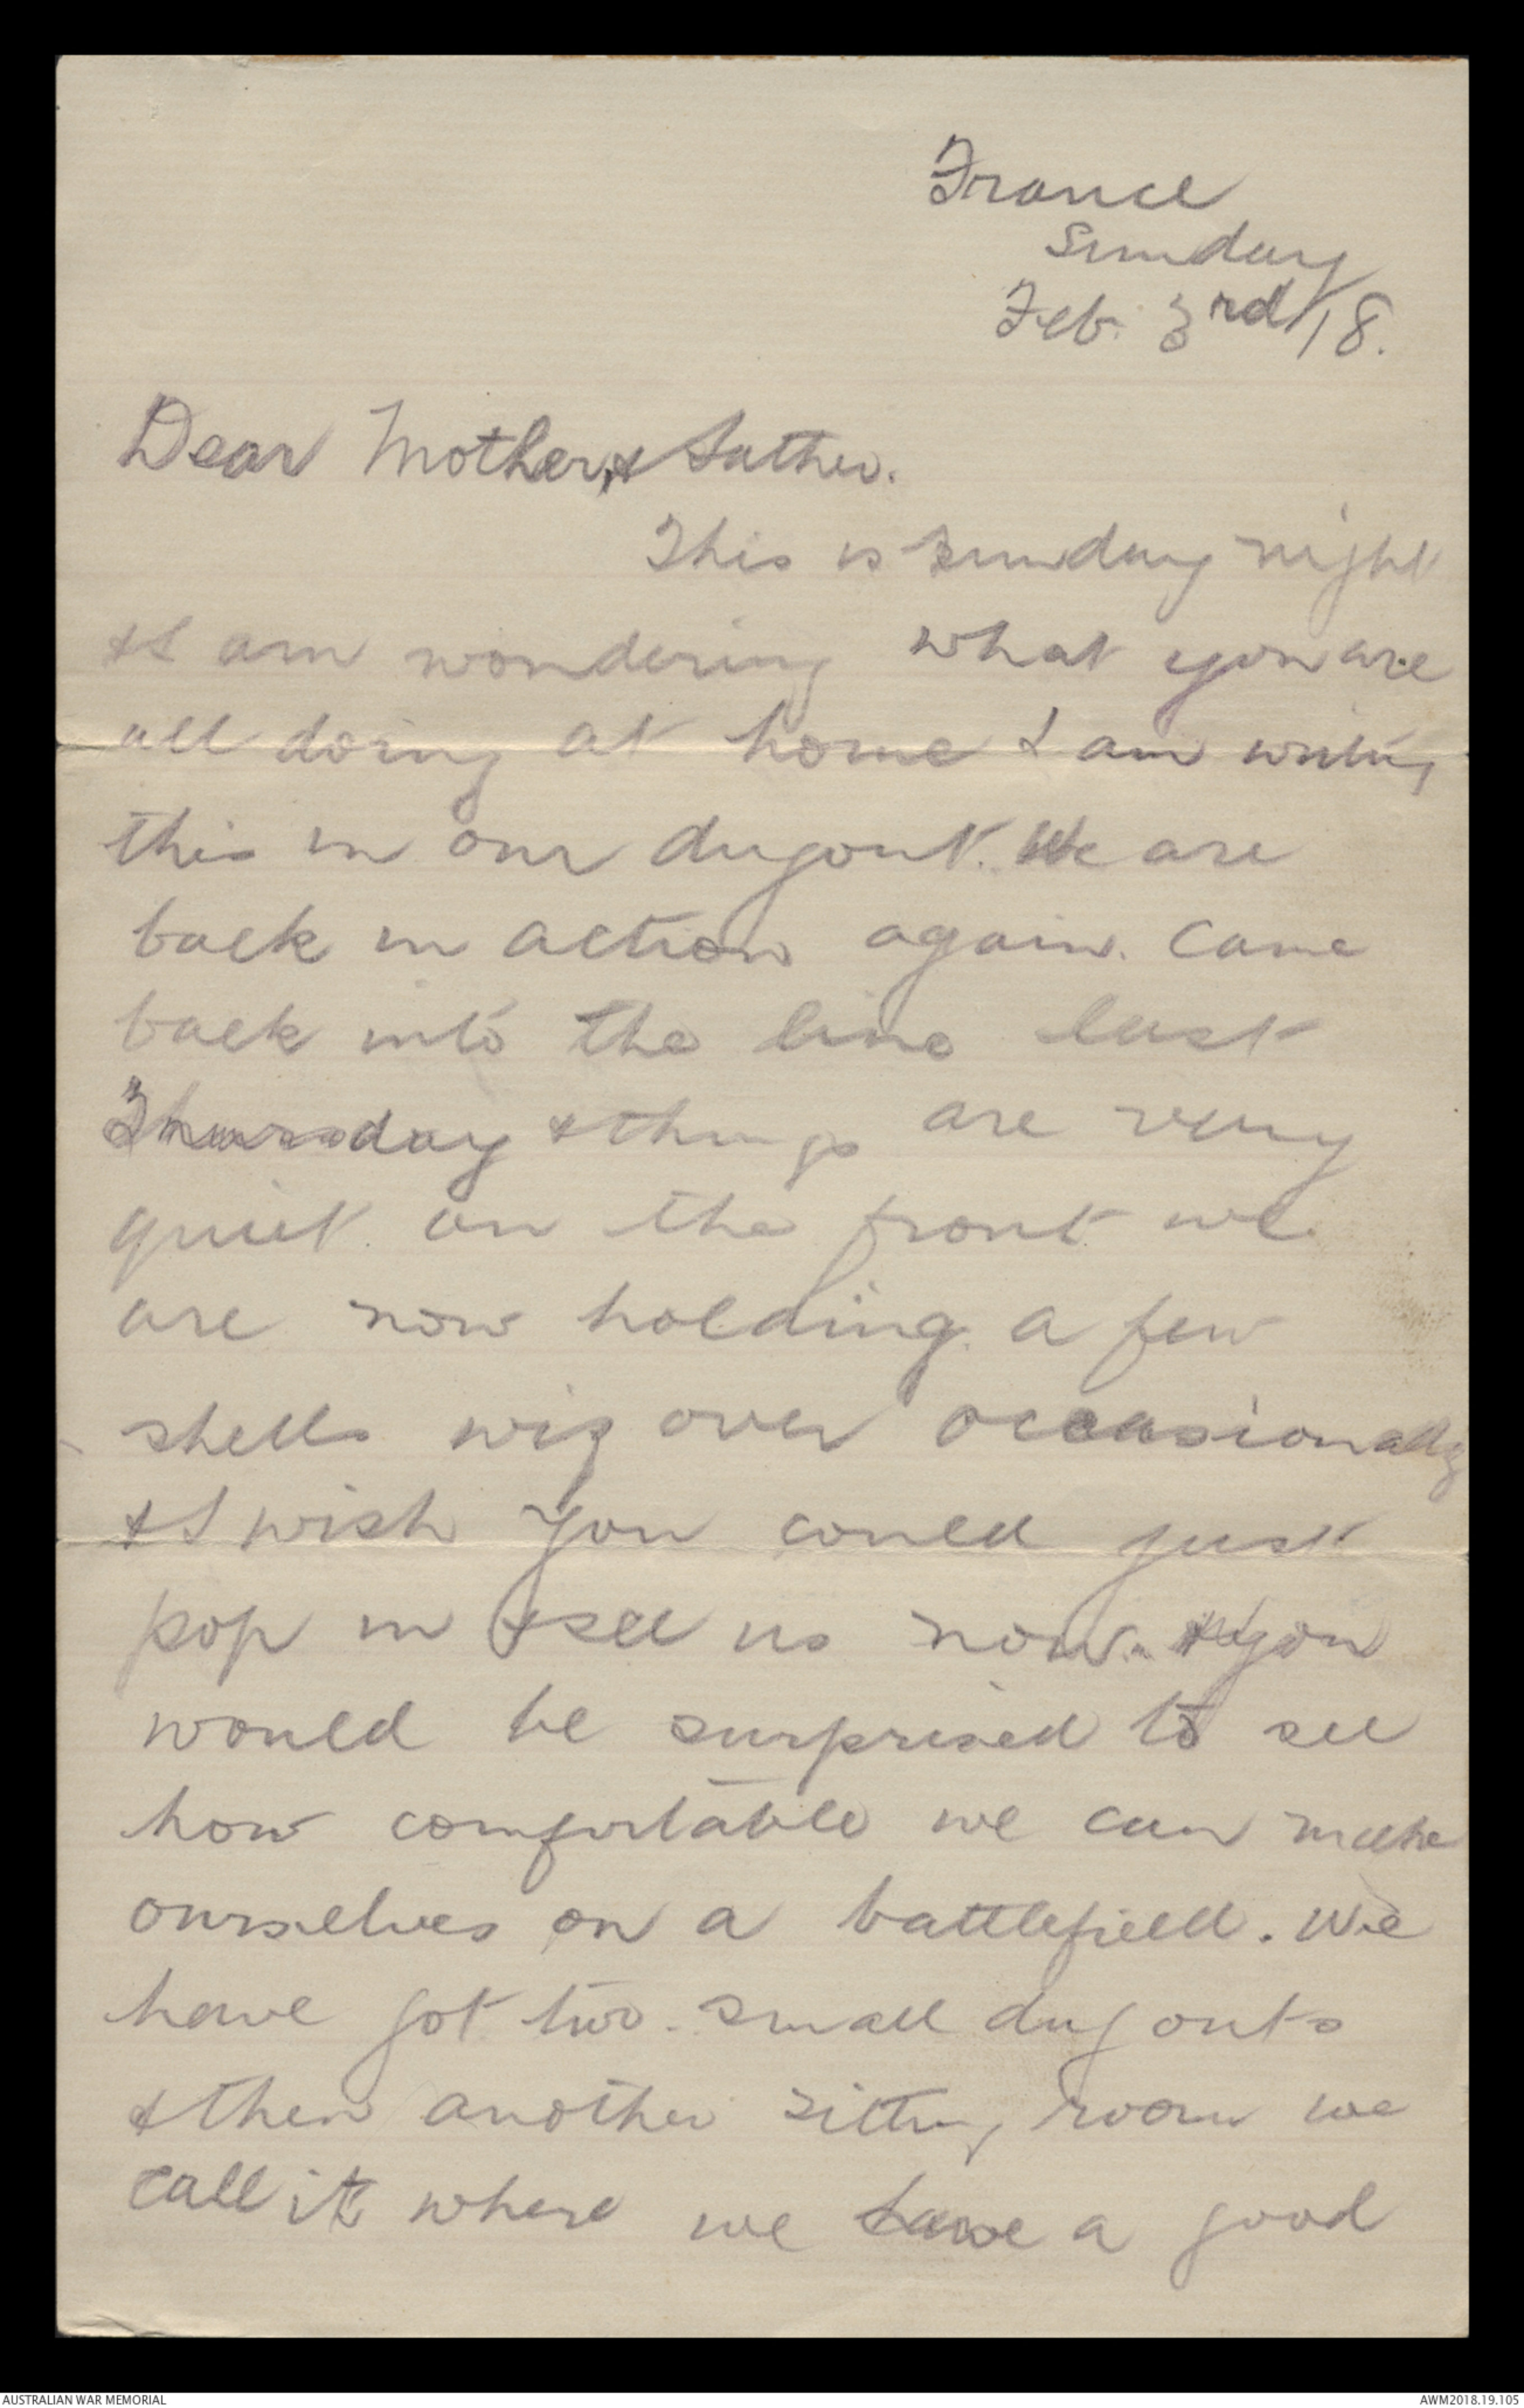 France
Sunday
Feb. 3rd/18.
Dear Mother & Father.
This is Sunday night
& I am wondering what you are
all doing at home I am writing
this in our dugout. We are
back in action again. Came
back into the line last
Thursday & things are very
quiet on the front we
are now holding. a few
shells wiz over occasionally
& I wish you could just
pop in & see us now. you
would be surprised to see
how comfortable we can make
ourselves on a battlefield. We
have got two small dug outs
& then another sitting room we
call it where we have a good
AUSTRALIAN WAR MEMORIAL
AWM2018.19.105